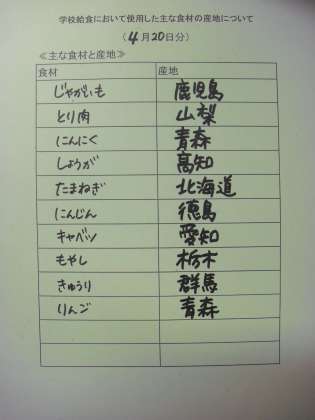 学校給食において使用した主な食材の産地について
(4月20日分)
≪主な食材と産地≫
食材 産地
じゃがいも 鹿児島
とり肉 山梨
にんにく 青森
しょうが 高知
たまねぎ 北海道
にんじん 徳島
キャベツ 愛知
もやし 栃木
きゅうり 群馬
りんご 青森